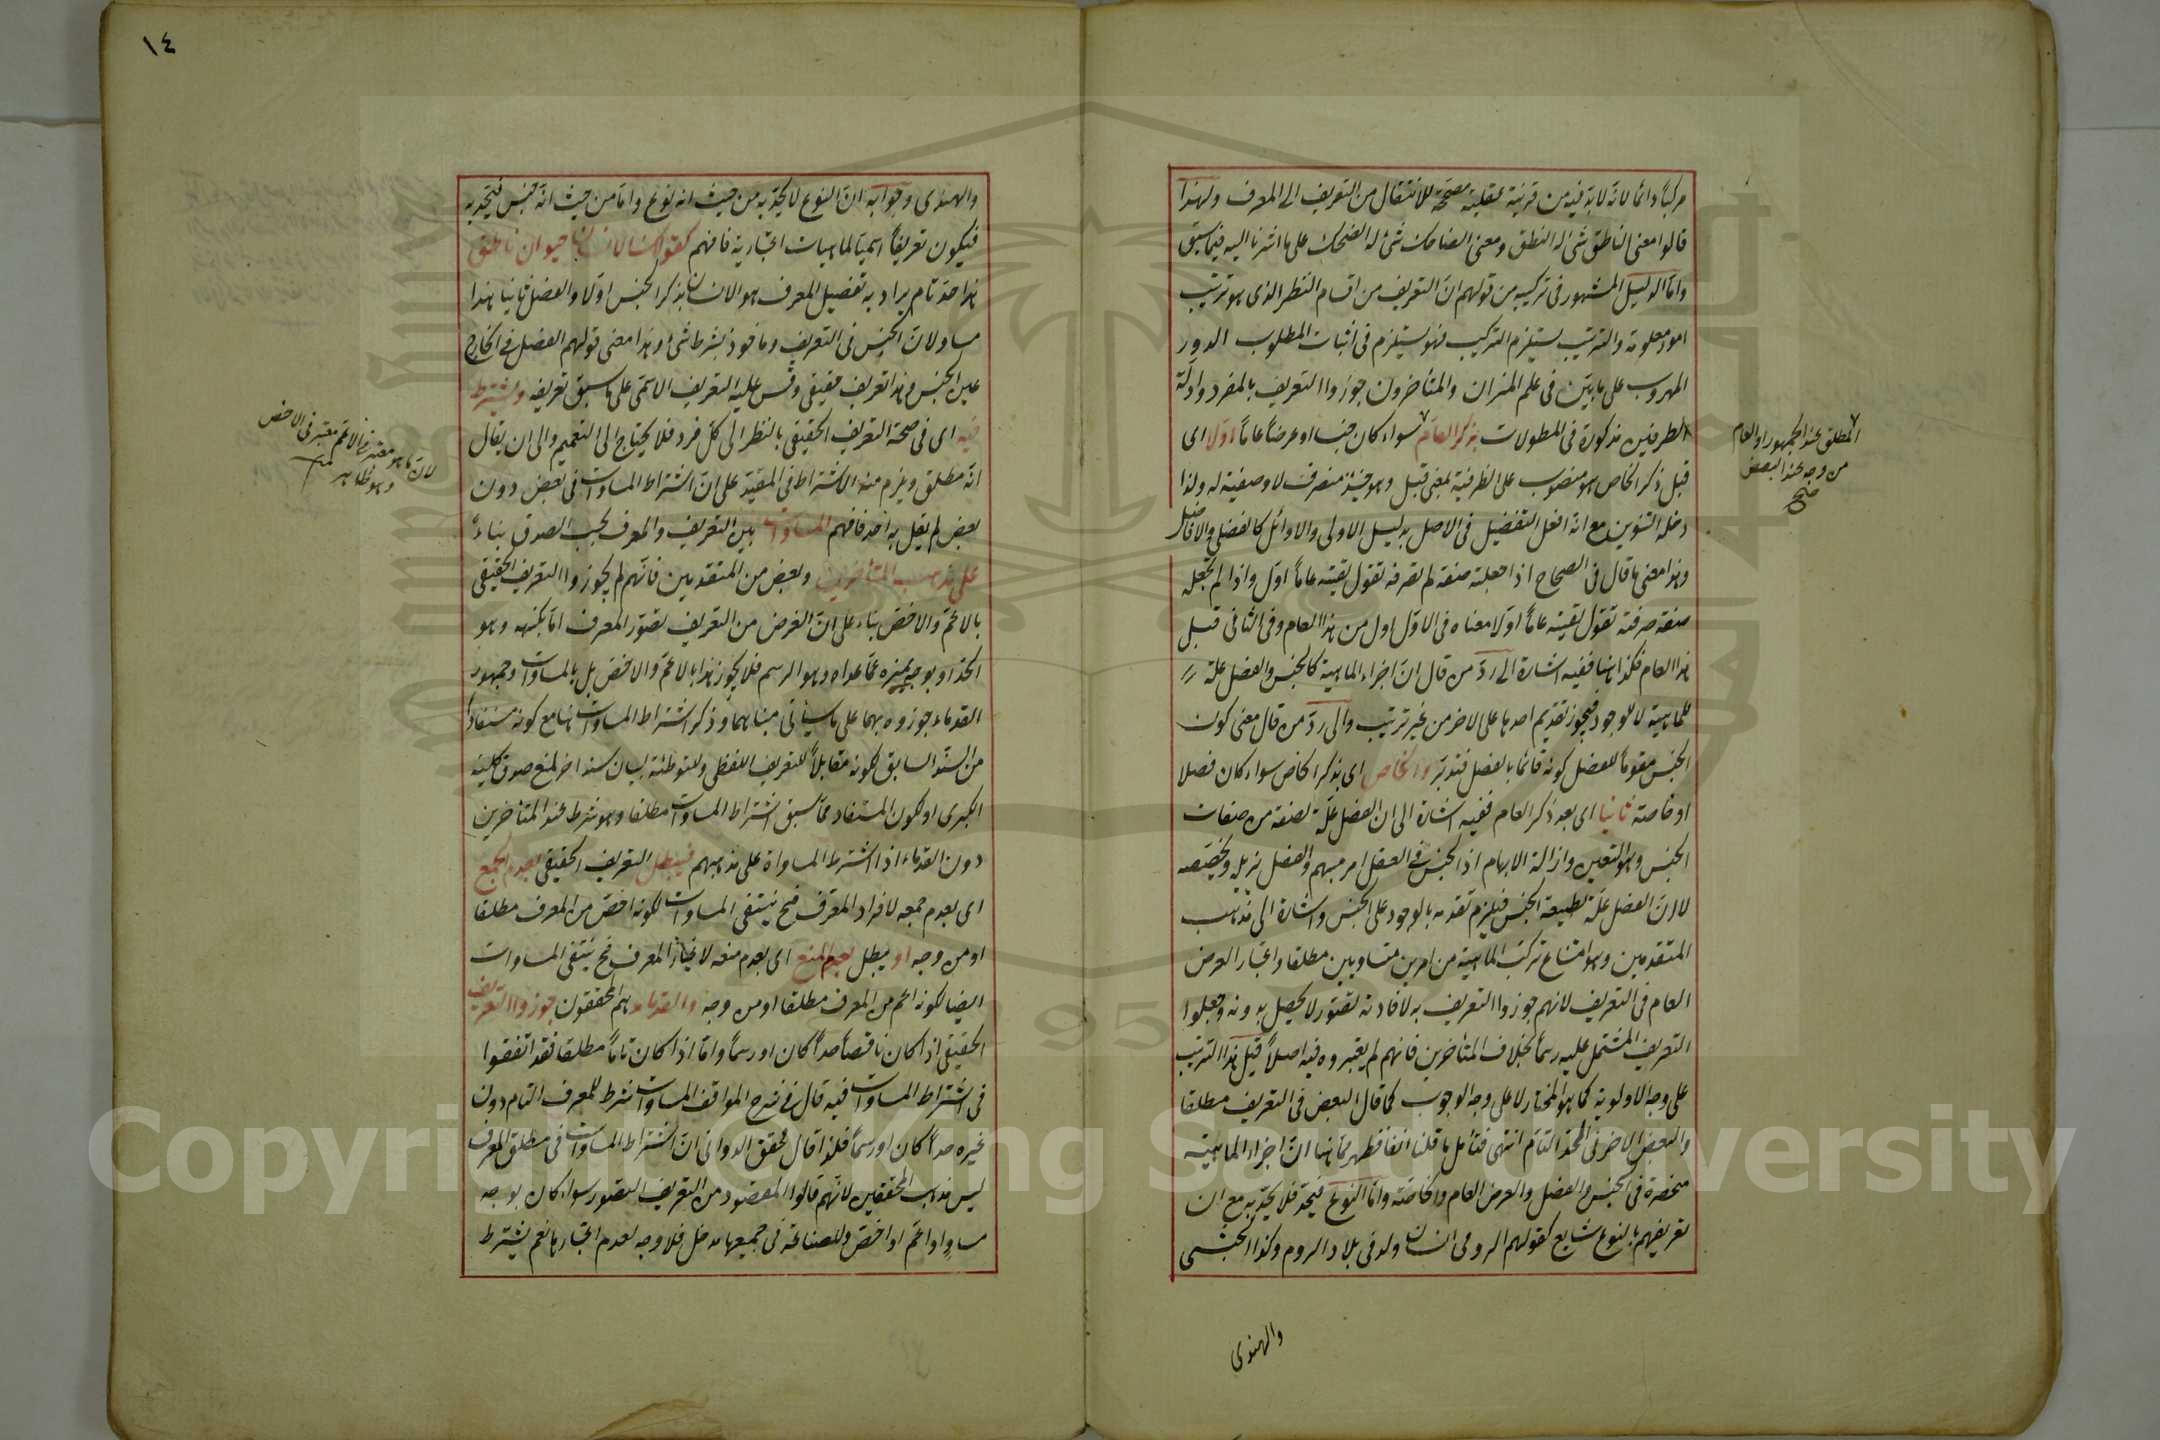 مركباً دائما لانه لا بد فيه من قرينة عقلية مصححة للانتقال من التعريف الى المعرف ولهذا
قالوا معنى الناطق شئ له النطق ومعنى الضاحك شئ له الضحك على ما اشرنا اليه فيما سبق
واما الدليل المشهور في تركيبه من قولهم ان التعريف من اقسام النظر الذى هو ترتيب
امور معلومة والترتيب يستلزم التركيب فهو يستلزم في اثبات المطلوب الدور
المهروب على ما بين في علم الميزان والمتأخرون جوزوا التعريف بالمفرد وادلة
الطرفين مذكورة في المطولات بذكر العام سواء كان جنسا او عرضا عاماً اولا اى
قبل ذكر الخاص هو منصوب على الظرفية بمعنى قبل وهو حينئذ منصرف لا وصفية له ولذا
دخله التنوين مع انه افعل التفضيل في الاصل بدليل الاولى والاوائل كالفضلى والافاضل
وهذا معنى ما قال في الصحاح اذا جعلته صفة لم تصرفه تقول لقيته عاماً اول واذا لم تجعله
صفة صرفته تقول لقيته عاماً اولا معناه في الاول اول من هذا العام وفي الثاني قبل
هذا العام فكذا ههنا ففيه اشارة الى رد من قال ان اجزاء الماهية كالجنس والفصل علة
للماهية لا للوجود فيجوز تقديم احدها على الاخر من غير ترتيب والى رد من قال معنى كون
الجنس مقوماً للفصل كونه قائما بالفصل فتدبر والخاص اى بذكر الخاص سواء كان فصلا
او خاصة ثانيا اى بعد ذكر العام ففيه اشارة الى ان الفصل علة لصفة من صفات
الجنس وهو التعين وازالة الابهام اذ الجنس في العقل امر مبهم والفصل يزيله ويخصصه
لا ان الفصل علة لطبيعة الجنس فيلزم تقدمه بالوجود على الجنس واشارة الى مذهب
المتقدمين وهو امتناع تركب الماهية من امرين متساويين مطلقا واعتبار العرض
العام في التعريف لانهم جوزوا التعريف به لافادته لتصور لا يحصل بدونه وجعلوا
التعريف المشتمل عليه رسماً بخلاف المتأخرين فانهم لم يعتبروه فيه اصلاً قيل هذا الترتيب
على وجه الاولوية كما هو المختار لا على وجه الوجوب كما قال البعض في التعريف مطلقا
والبعض الاخر في الحد التام انتهى فتأمل ما قلنا انفا فظهر مما ههنا ان اجزاء الماهية
منحصرة في الجنس والفصل والعرض العام والخاصة واما النوع فيحد فلا يحد به مع ان
تعريفهم بالنوع شايع كقولهم الرومى انسان ولد في بلاد الروم وكذا الحبشى
والهندى
المطلق عند الجمهور او العام
من وجه عند البعض
صح
١٤
والهندى وجوابه ان النوع لا يحد به من حيث انه نوع واما من حيث انه جنس فيحد به
فيكون تعريفاً اسميا لماهيات اعتبارية فافهم كقولك الانسان حيوان ناطق
هذا حد تام يراد به تفصيل المعرف هو الانسان بذكر الجنس اولا والفصل ثانيا هذا
مساو لان الجنس في التعريف ومأخوذ بشرط شئ وهذا معنى قولهم الفصل في الخارج
عين الجنس وهذا تعريف حقيقى وقس عليه التعريف الاسمى على ما سبق تعريفه ويشترط
فيه اى في صحة التعريف الحقيقى بالنظر الى كل فرد فلا يحتاج الى التعميم والى ان يقال
انه مطلق ويلزم منه الاشتراط في المقيد على ان اشتراط المساوات في بعض دون
بعض لم يقل به احد فافهم المساوات بين التعريف والمعرف بحسب الصدق بناءً
على مذهب المتأخرين وبعض من المتقدمين فانهم لم يجوزوا التعريف الحقيقى
بالاعم والاخص بناء على ان الغرض من التعريف تصور المعرف اما بكنهه وهو
الحد او بوجه يميزه عما عداه وهو الرسم فلا يجوز هذا بالاعم والاخص بل بالمساوات وجمهور
القدماء جوزوه بهما على ما سيأتى مثالهما وذكر اشتراط المساوات ههنا مع كونه مستفاداً
من السند السابق لكونه مقابلاً للتعريف اللفظى وللتوطئة لبيان سند اخر لمنع صدق كلية
الكبرى او لكون المستفاد مما سبق اشتراط المساوات مطلقا وهو شرط عند المتأخرين
دون القدماء اذا اشترط المساواة على مذهبهم فيبطل التعريف الحقيقى بعدم الجمع
اى بعدم جمعه لافراد المعرف فح ينتفى المساوات لكونه اخص من المعرف مطلقا
او من وجه او يبطل بعدم المنع اى بعدم منعه لاغيار المعرف فح ينتفى المساوات
ايضا لكونه اعم من المعرف مطلقا او من وجه والقدماء هم المحققون جوزوا التعريف
الحقيقى اذا كان ناقصاً حداً كان او رسماً واما اذا كان تاماً مطلقا فقد اتفقوا
في اشتراط المساوات فيه قال في شرح المواقف المساوات شرط للمعرف التام دون
غيره حداً كان او رسماً فلذا قال المحقق الدوانى ان اشتراط المساوات في مطلق المعرف
ليس مذهب المحققين لانهم قالوا المقصود من التعريف التصور سواء كان بوجه
مساو او اعم او اخص وللصناعة في جميعها مدخل فلا وجه لعدم اعتبارها نعم يشترط
لان ما هو معتبر في الاعم معتبر في الاخص
وهو ظاهر
Copyright © King Saud University